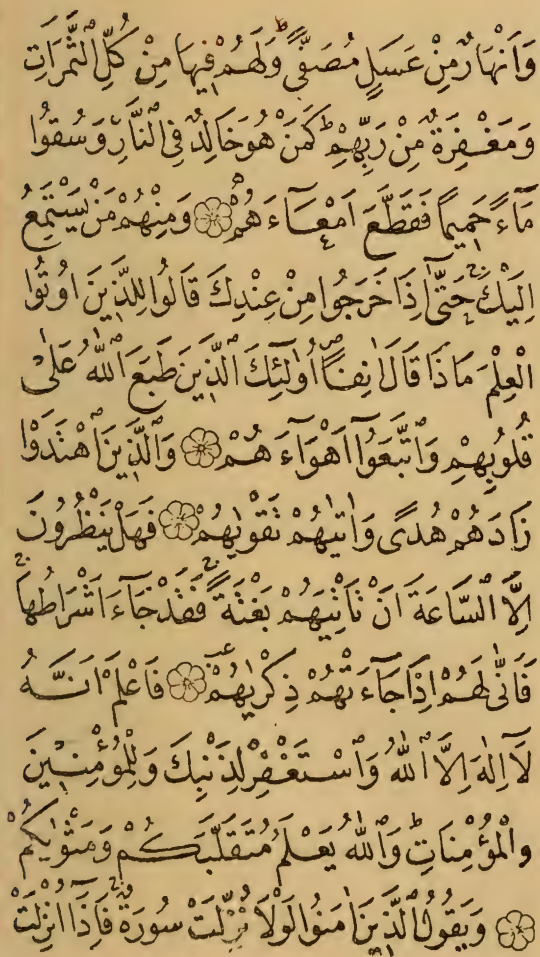 وَاَنْهَارٌ مِنْ عَسَلٍ مُصَفًّىۜ وَلَهُمْ فِيهَا مِنْ كُلِّ الثَّمَرَاتِ
وَمَغْفِرَةٌ مِنْ رَبِّهِمْۜ كَمَنْ هُوَ خَالِدٌ فِي النَّارِ وَسُقُوا
مَآءً حَمِيمًا فَقَطَّعَ اَمْعَآءَهُمْ ۝ وَمِنْهُمْ مَنْ يَسْتَمِعُ
اِلَيْكَ حَتّٰٓى اِذَا خَرَجُوا مِنْ عِنْدِكَ قَالُوا لِلَّذِينَ اُوتُوا
الْعِلْمَ مَاذَا قَالَ اٰنِفًا اُولٰٓئِكَ الَّذِينَ طَبَعَ اللّٰهُ عَلٰى
قُلُوبِهِمْ وَاتَّبَعُوٓا اَهْوَآءَهُمْ ۝ وَالَّذِينَ اهْتَدَوْا
زَادَهُمْ هُدًى وَاٰتٰيهُمْ تَقْوٰيهُمْ ۝ فَهَلْ يَنْظُرُونَ
اِلَّا السَّاعَةَ اَنْ تَاْتِيَهُمْ بَغْتَةً فَقَدْ جَآءَ اَشْرَاطُهَا
فَاَنّٰى لَهُمْ اِذَا جَآءَتْهُمْ ذِكْرٰيهُمْ ۝ فَاعْلَمْ اَنَّهُ
لَآ اِلٰهَ اِلَّا اللّٰهُ وَاسْتَغْفِرْ لِذَنْبِكَ وَلِلْمُؤْمِنِينَ
وَالْمُؤْمِنَاتِۜ وَاللّٰهُ يَعْلَمُ مُتَقَلَّبَكُمْ وَمَثْوٰيكُمْ
۝ وَيَقُولُ الَّذِينَ اٰمَنُوا لَوْلَا نُزِّلَتْ سُورَةٌ فَاِذَآ اُنْزِلَتْ